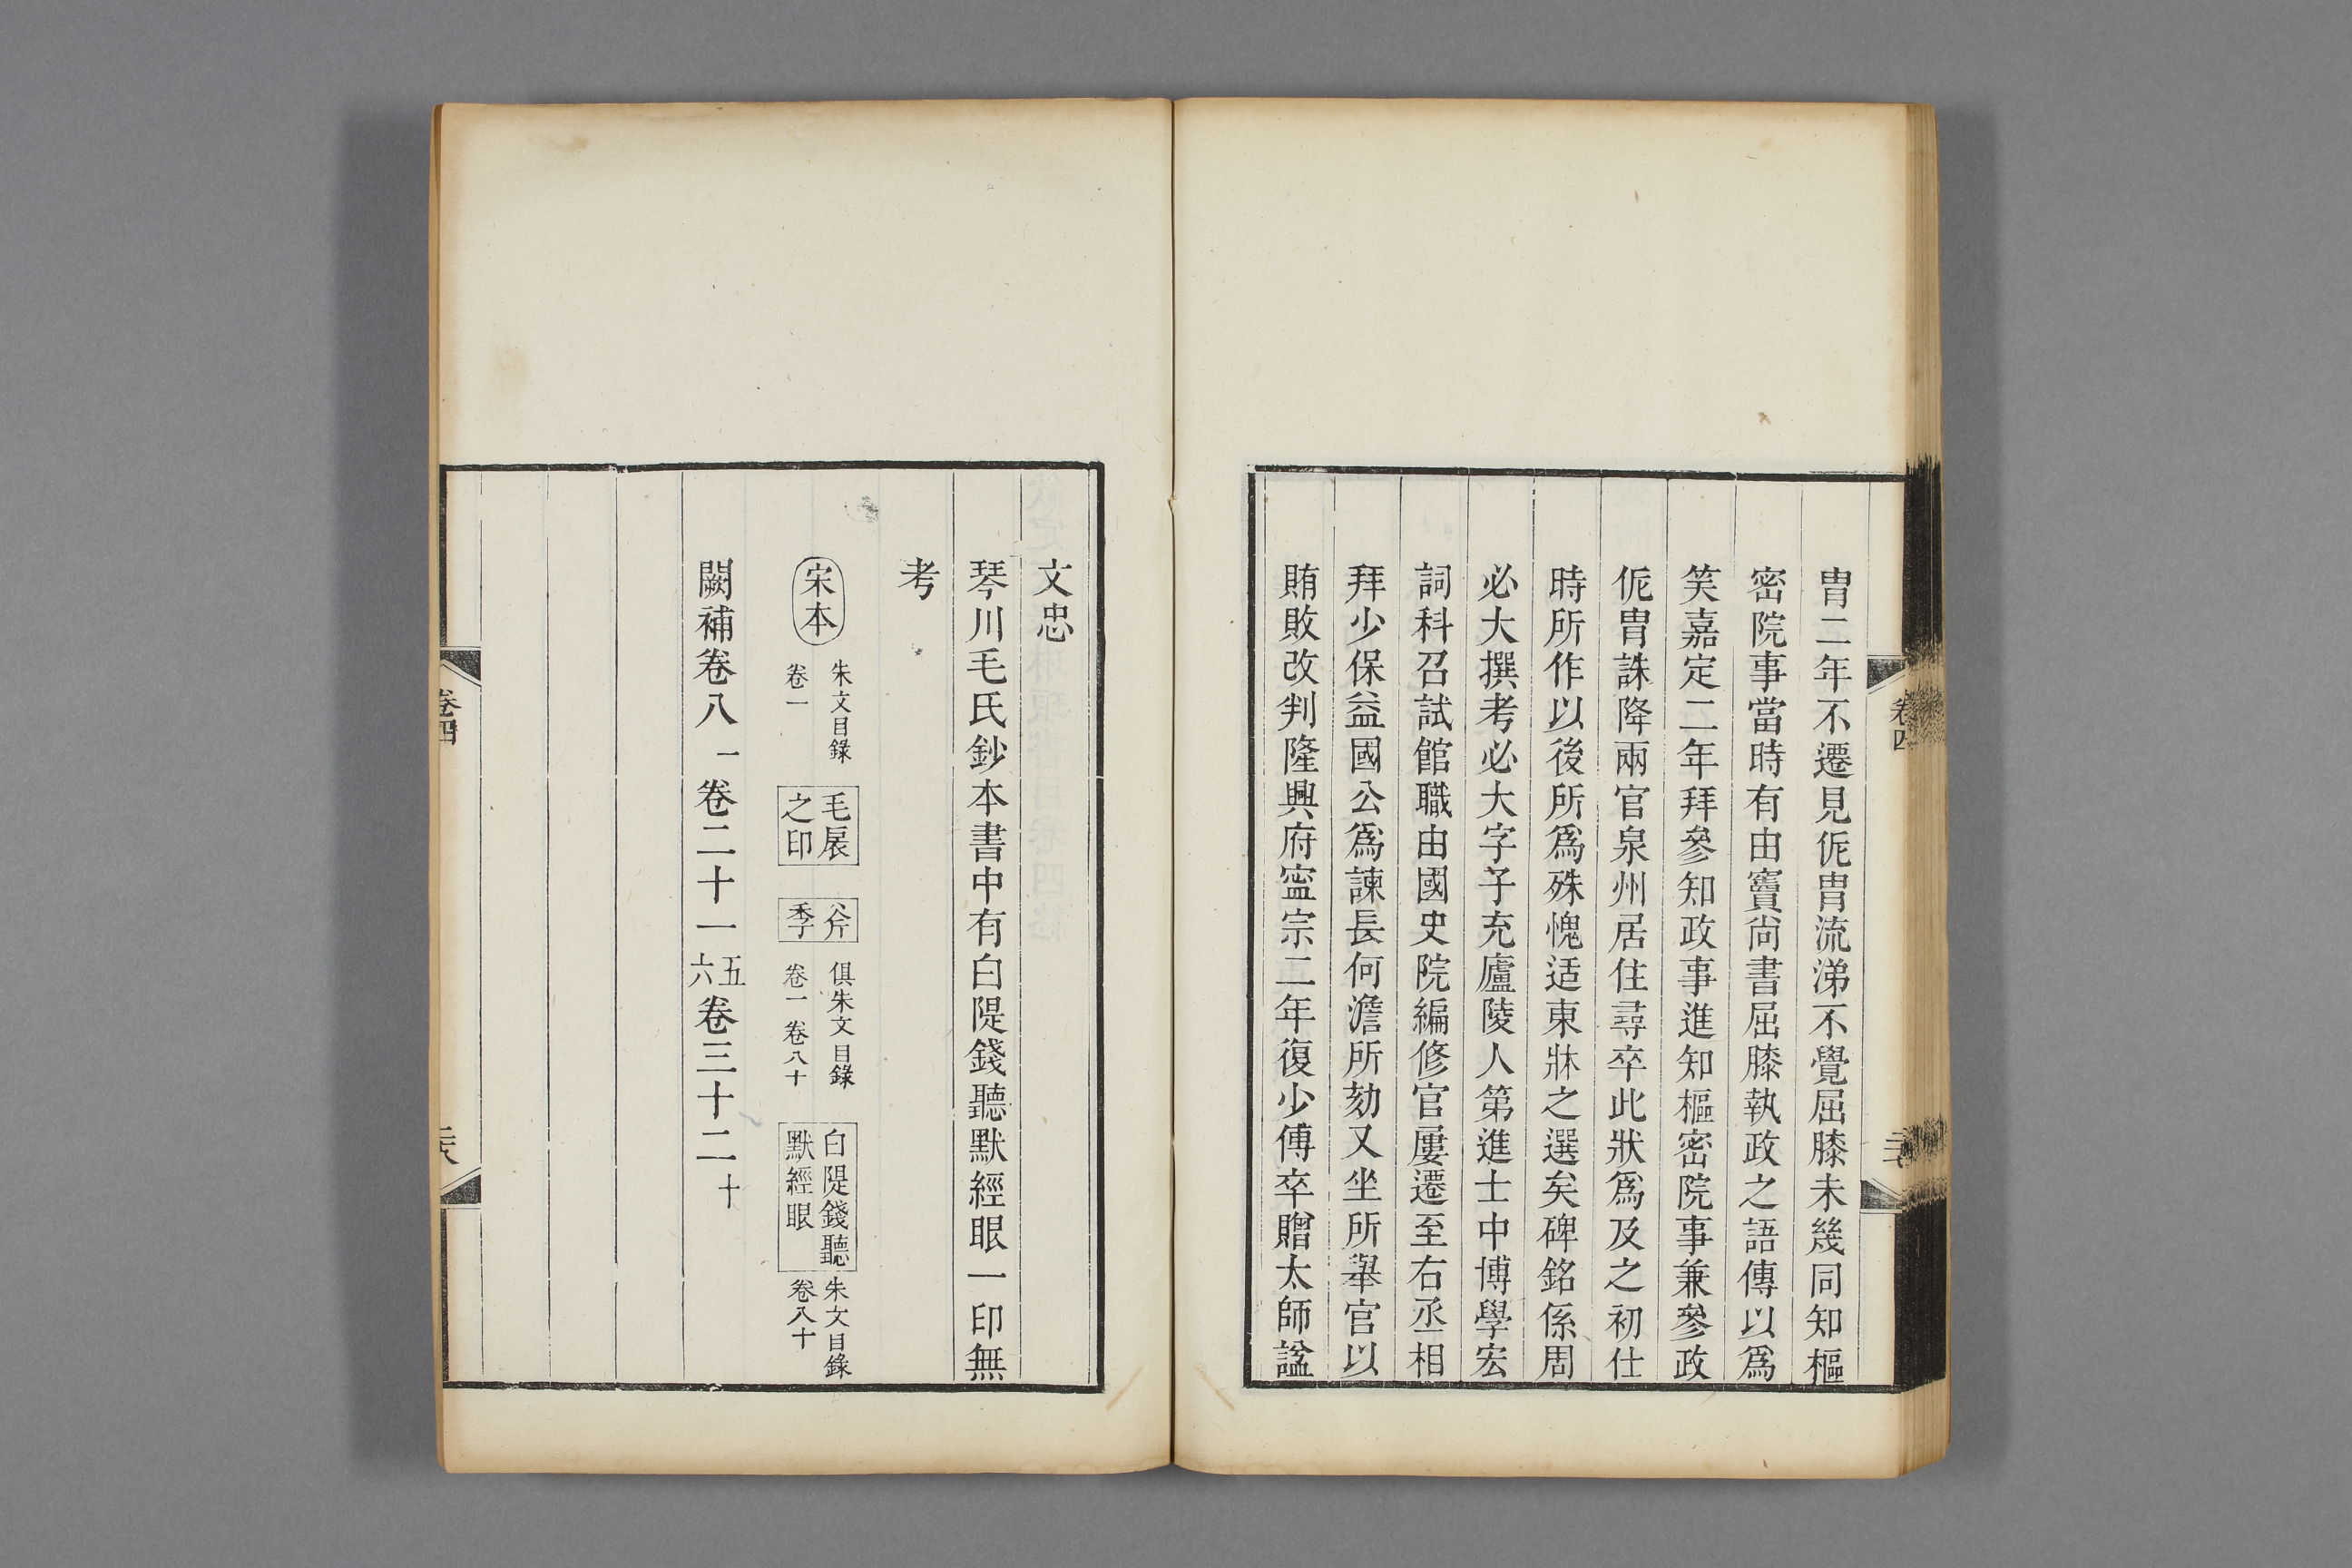 冑二年不遷見侂冑流涕不覺屈膝未幾同知樞
密院事當時有由竇尚書屈膝執政之語傳以爲
笑嘉定二年拜參知政事進知樞密院事兼參政
侂冑誅降兩官泉州居住尋卒此狀爲及之初仕
時所作以後所爲殊愧适東牀之選矣碑銘係周
必大撰考必大字子充廬陵人第進士中博學宏
詞科召試館職由國史院編修官屢遷至右丞相
拜少保益國公爲諫長何澹所劾又坐所舉官以
賄敗改判隆興府寍宗二年復少傅卒贈太師諡
卷四
文忠
琴川毛氏鈔本書中有白隄錢聽默經眼一印無
考
宋本
朱文目錄
卷一
毛扆
之印
斧
季
俱朱文目錄
卷一卷八十
白隄錢聽
默經眼
朱文目錄
卷八十
闕補卷八一卷二十一五
六卷三十二十
卷四